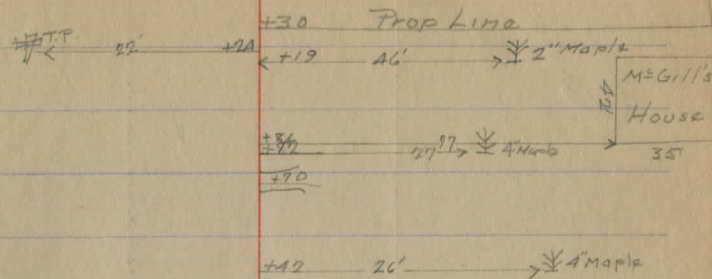 +30 Prop Line
T.P. 22' +24
+19 46' 2" Maple
McGill's
42
House
+72 27 77 4" Maple
35'
+70
+42 26' 4" Maple